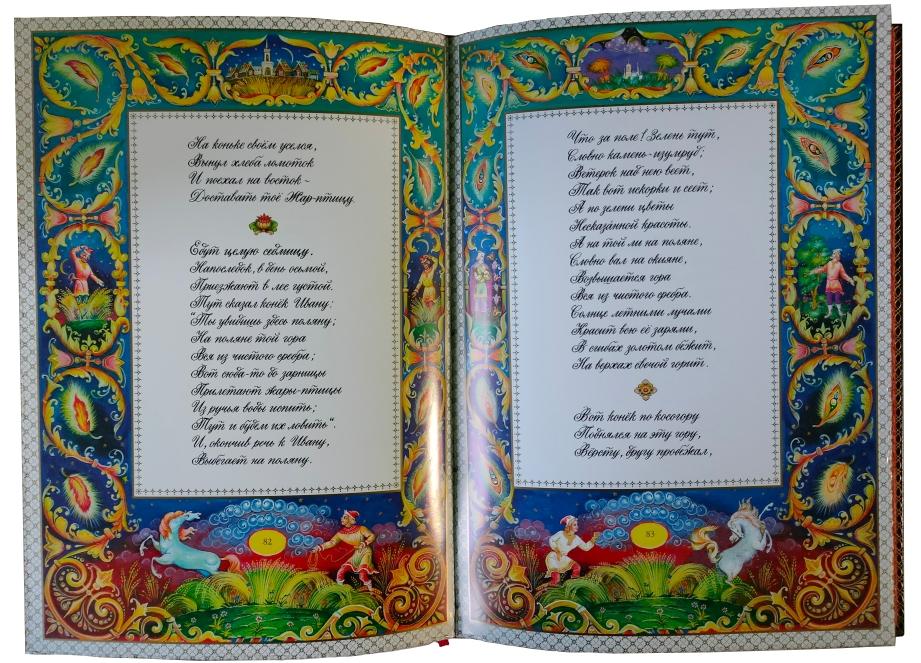 На коньке своём уселся,
Вынул хлеба ломоток
И поехал на восток ~
Доставать тоё Жар-птицу.
Едут целую седмицу.
Напоследок, в день осьмой,
Приезжают в лес густой.
Тут сказал конёк Ивану:
"Ты увидишь здесь поляну;
На поляне той гора
Вся из чистого сребра;
Вот сюда-то до зарницы
Прилетают жары-птицы
Из ручья воды испить;
Тут и будем их ловить".
И, окончив речь к Ивану,
Выбегает на поляну.
82
Что за поле! Зелень тут,
Словно камень-изумруд;
Ветерок над нею веет,
Так вот искорки и сеет;
А по зелени цветы
Несказáнной красоты.
А на той ли на поляне,
Словно вал на океане,
Возвышается гора
Вся из чистого сребра.
Солнце летними лучами
Красит всю её зарями,
В сгибах золотом бежит,
На верхах свечой горит.
Вот конёк по косогору
Поднялся на эту гору,
Вёрсту, другу пробежал,
83